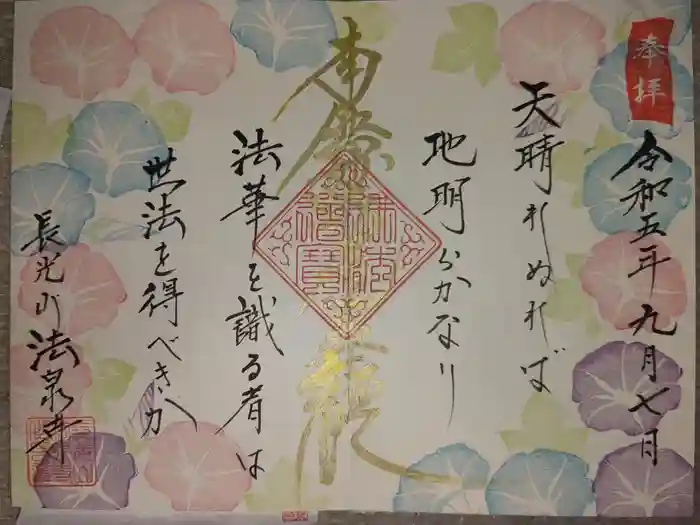 奉拝
令和五年九月七日
天晴れぬれば
地明らかなり
法華を識る者は
世法を得べきか
長光山
法泉寺